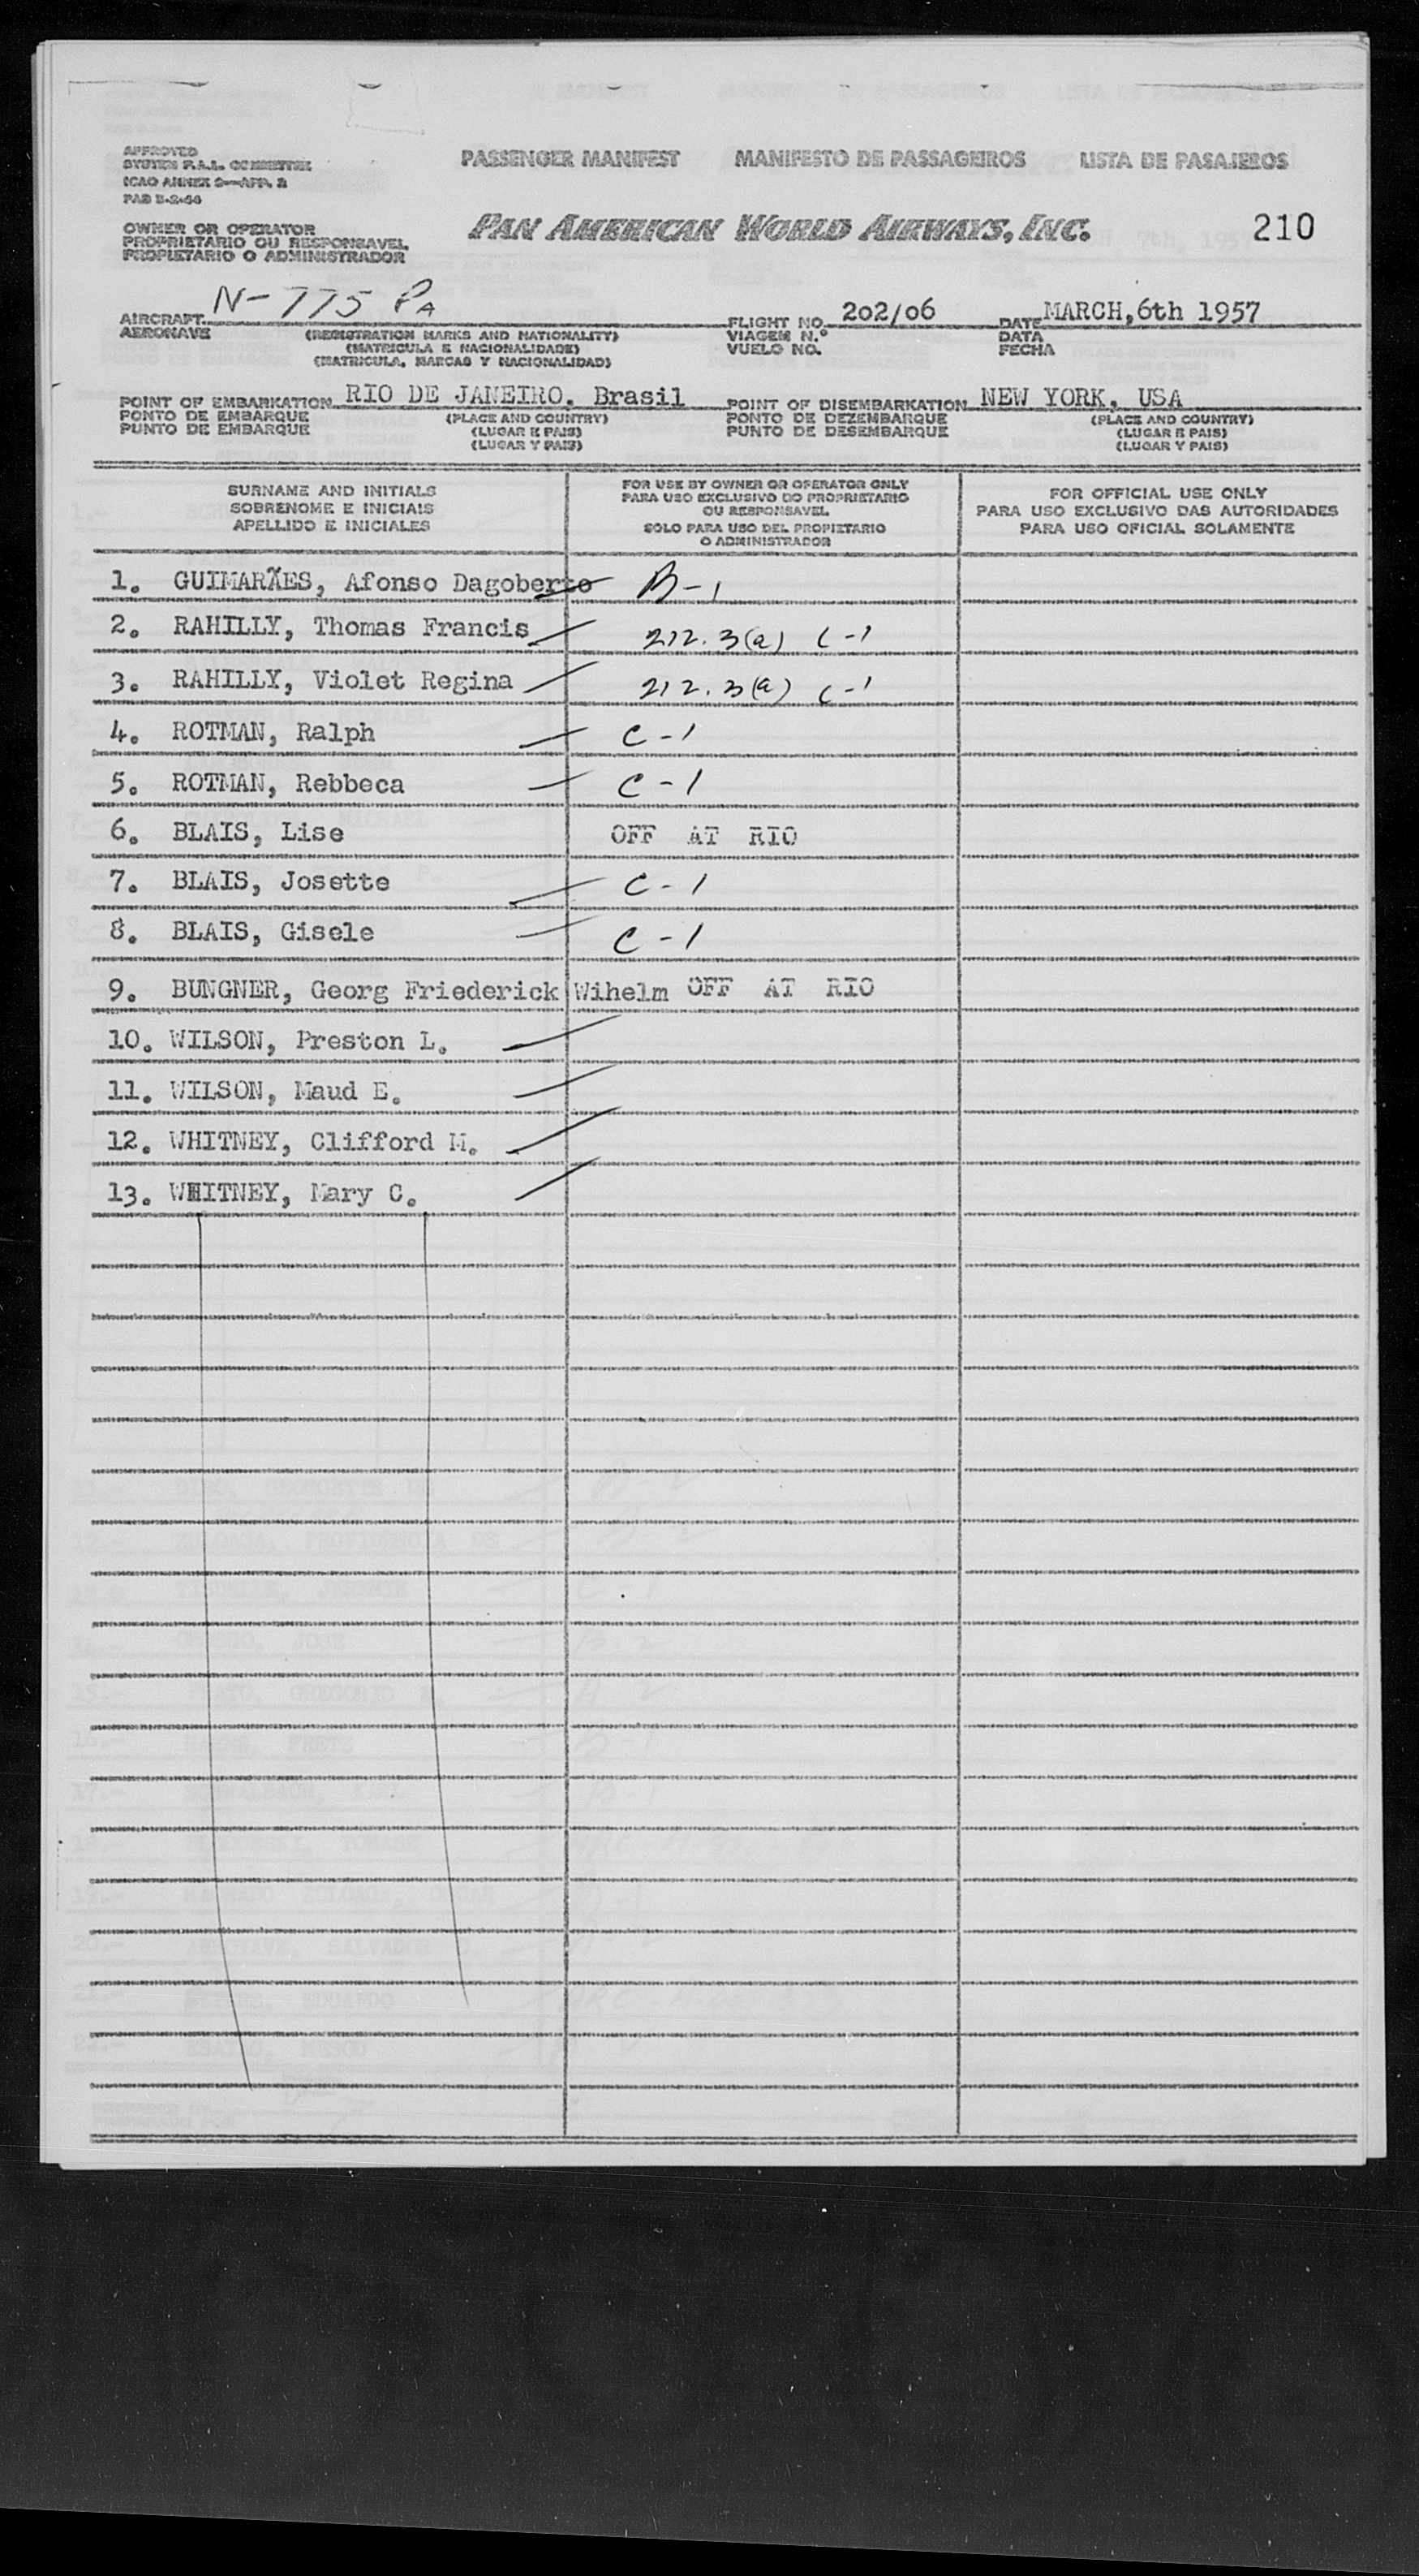 APPROVED
SYSTEM F.A.L. COMMITTEE
ICAO ANNEX 9—APP. 2
PASSENGER MANIFEST MANIFESTO DE PASSAGEIROS LISTA DE PASAJEROS
OWNER OR OPERATOR
PROPRIETARIO OU RESPONSAVEL
PROPIETARIO O ADMINISTRADOR
PAN AMERICAN WORLD AIRWAYS, INC. 210
AIRCRAFT N-775 PA FLIGHT NO. 202/06 DATE MARCH,6th 1957
AERONAVE (REGISTRATION MARKS AND NATIONALITY) VIAGEM N.º DATA
(MATRICULA E NACIONALIDADE) VUELO NO. FECHA
(MATRICULA, MARCAS Y NACIONALIDAD)
POINT OF EMBARKATION RIO DE JANEIRO, Brasil POINT OF DISEMBARKATION NEW YORK, USA
PONTO DE EMBARQUE (PLACE AND COUNTRY) PONTO DE DEZEMBARQUE (PLACE AND COUNTRY)
PUNTO DE EMBARQUE (LUGAR E PAIS) PUNTO DE DESEMBARQUE (LUGAR E PAIS)
(LUGAR Y PAIS) (LUGAR Y PAIS)
SURNAME AND INITIALS
SOBRENOME E INICIAIS
APELLIDO E INICIALES
FOR USE BY OWNER OR OPERATOR ONLY
PARA USO EXCLUSIVO DO PROPRIETARIO
OU RESPONSAVEL
SOLO PARA USO DEL PROPIETARIO
O ADMINISTRADOR
FOR OFFICIAL USE ONLY
PARA USO EXCLUSIVO DAS AUTORIDADES
PARA USO OFICIAL SOLAMENTE
1. GUIMARÃES, Afonso Dagoberto B-1
2. RAHILLY, Thomas Francis 212.3(a) C-1
3. RAHILLY, Violet Regina 212.3(a) C-1
4. ROTMAN, Ralph C-1
5. ROTMAN, Rebbeca C-1
6. BLAIS, Lise OFF AT RIO
7. BLAIS, Josette C-1
8. BLAIS, Gisele C-1
9. BUNGNER, Georg Friederick Wihelm OFF AT RIO
10. WILSON, Preston L.
11. WILSON, Maud E.
12. WHITNEY, Clifford M.
13. WHITNEY, Mary C.